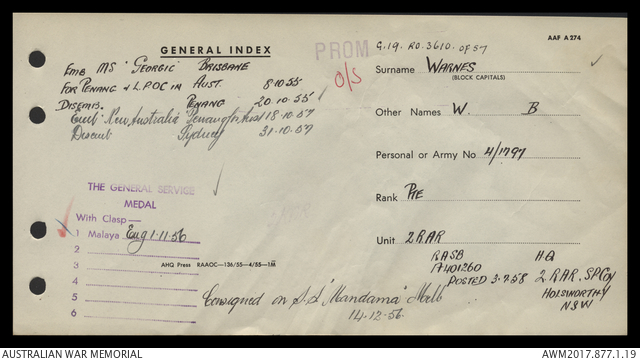 GENERAL INDEX
AAF A274
PROM
O/S
G.19. RO. 3610. OF 57
EMB MS "GEORGIC" BRISBANE
FOR PENANG & L.P.O.C IN AUST. 8.10.55
DISEMB. PENANG 20.10.55
Emb "New Australia" Penang for Aust 18.10.57
Disemb Sydney 31.10.57
Surname WARNES
(BLOCK CAPITALS)
Other Names W. B
Personal or Army No 4/1797
Rank PTE
Unit 2RAR
RASB
A401260
POSTED 3.7.58
HQ
2 RAR, SP Coy
HOLSWORTHY
NSW
THE GENERAL SERVICE
MEDAL
With Clasp—
1 Malaya Eng 1.11.56
2
3
4
5
6
AHQ Press RAAOC—136/55—4/55—1M
Consigned on S.S "Mandama" Melb
14.12.56
AUSTRALIAN WAR MEMORIAL
AWM2017.877.1.19